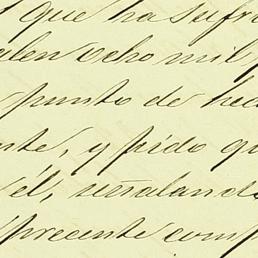 que ha sufri
alen ocho mil,
punto de hec
nte, y pido qu
él, señalando
precente com